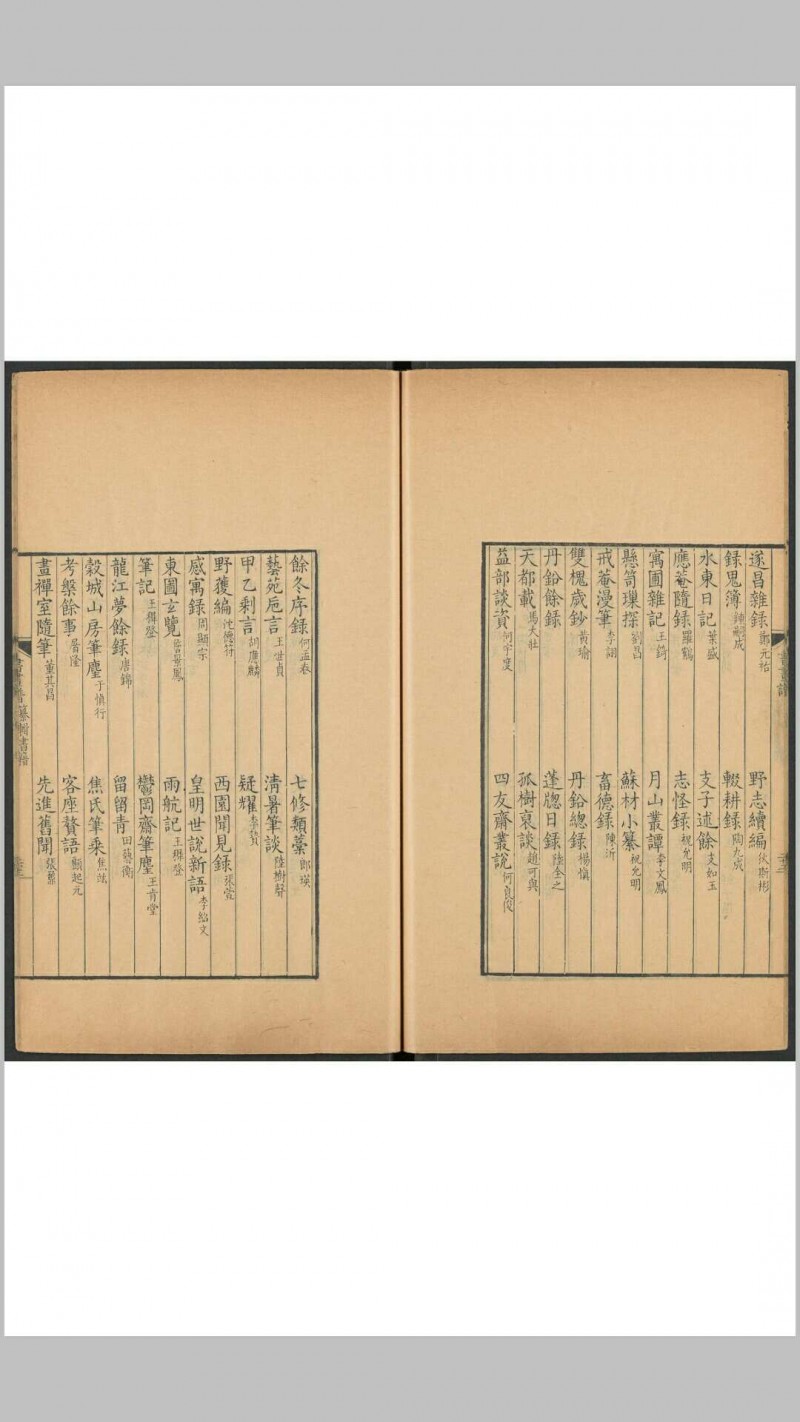 遂昌雜錄 鄭元祐 野志續編 伙斯彬
錄鬼簿 鍾嗣成 輟耕錄 陶九成
水東日記 葉盛 支子述餘 支如玉
應菴隨錄 羅鶴 志怪錄 祝允明
寓圃雜記 王錡 月山叢譚 李文鳳
懸笥瑣探 劉昌 蘇材小纂 祝允明
戒菴漫筆 李詡 畜德錄 陳沂
雙槐歲鈔 黃瑜 丹鉛總錄 楊慎
丹鉛餘錄 蓬牎日錄 陸全之
天都載 馬大壯 孤樹裒談 趙可與
益部談資 何宇度 四友齋叢說 何良俊
餘冬序錄 何孟春 七修類藁 郎瑛
藝苑巵言 王世貞 清暑筆談 陸樹聲
甲乙剩言 胡應麟 疑耀 李贄
野獲編 沈德符 西園聞見錄 張萱
感寓錄 周顯宗 皇明世說新語 李紹文
東圖玄覽 詹景鳳 雨航記 王穉登
筆記 王穉登 鬱岡齋筆麈 王肯堂
龍江夢餘錄 唐錦 留留青 田藝衡
穀城山房筆麈 于慎行 焦氏筆乘 焦竑
考槃餘事 屠隆 客座贅語 顧起元
畫禪室隨筆 董其昌 先進舊聞 張鼐
書畫譜
纂輯書籍